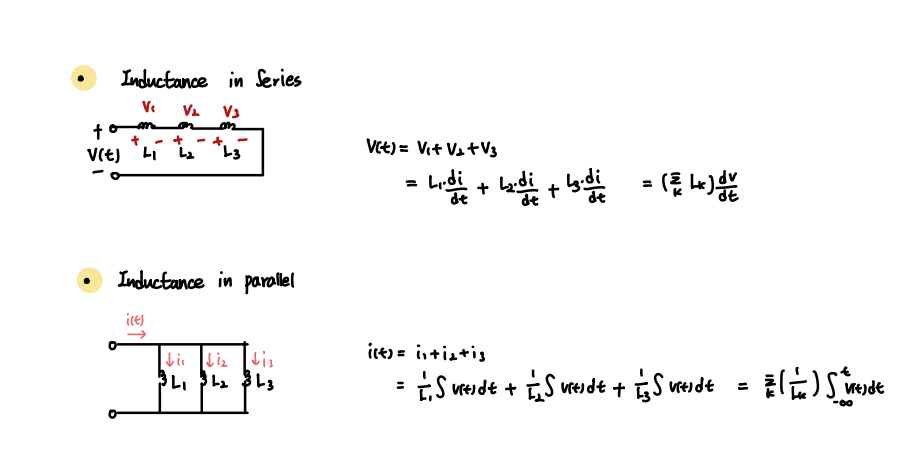 • Inductance in Series
V1 V2 V3
+ + - + - + -
V(t) L1 L2 L3
-
V(t) = V1 + V2 + V3
= L1·di/dt + L2·di/dt + L3·di/dt = (Σk Lk) dv/dt
• Inductance in parallel
i(t)
→
↓i1 ↓i2 ↓i3
L1 L2 L3
i(t) = i1 + i2 + i3
= 1/L1 ∫ v(t) dt + 1/L2 ∫ v(t) dt + 1/L3 ∫ v(t) dt = Σk (1/Lk) ∫-∞^t v(t) dt